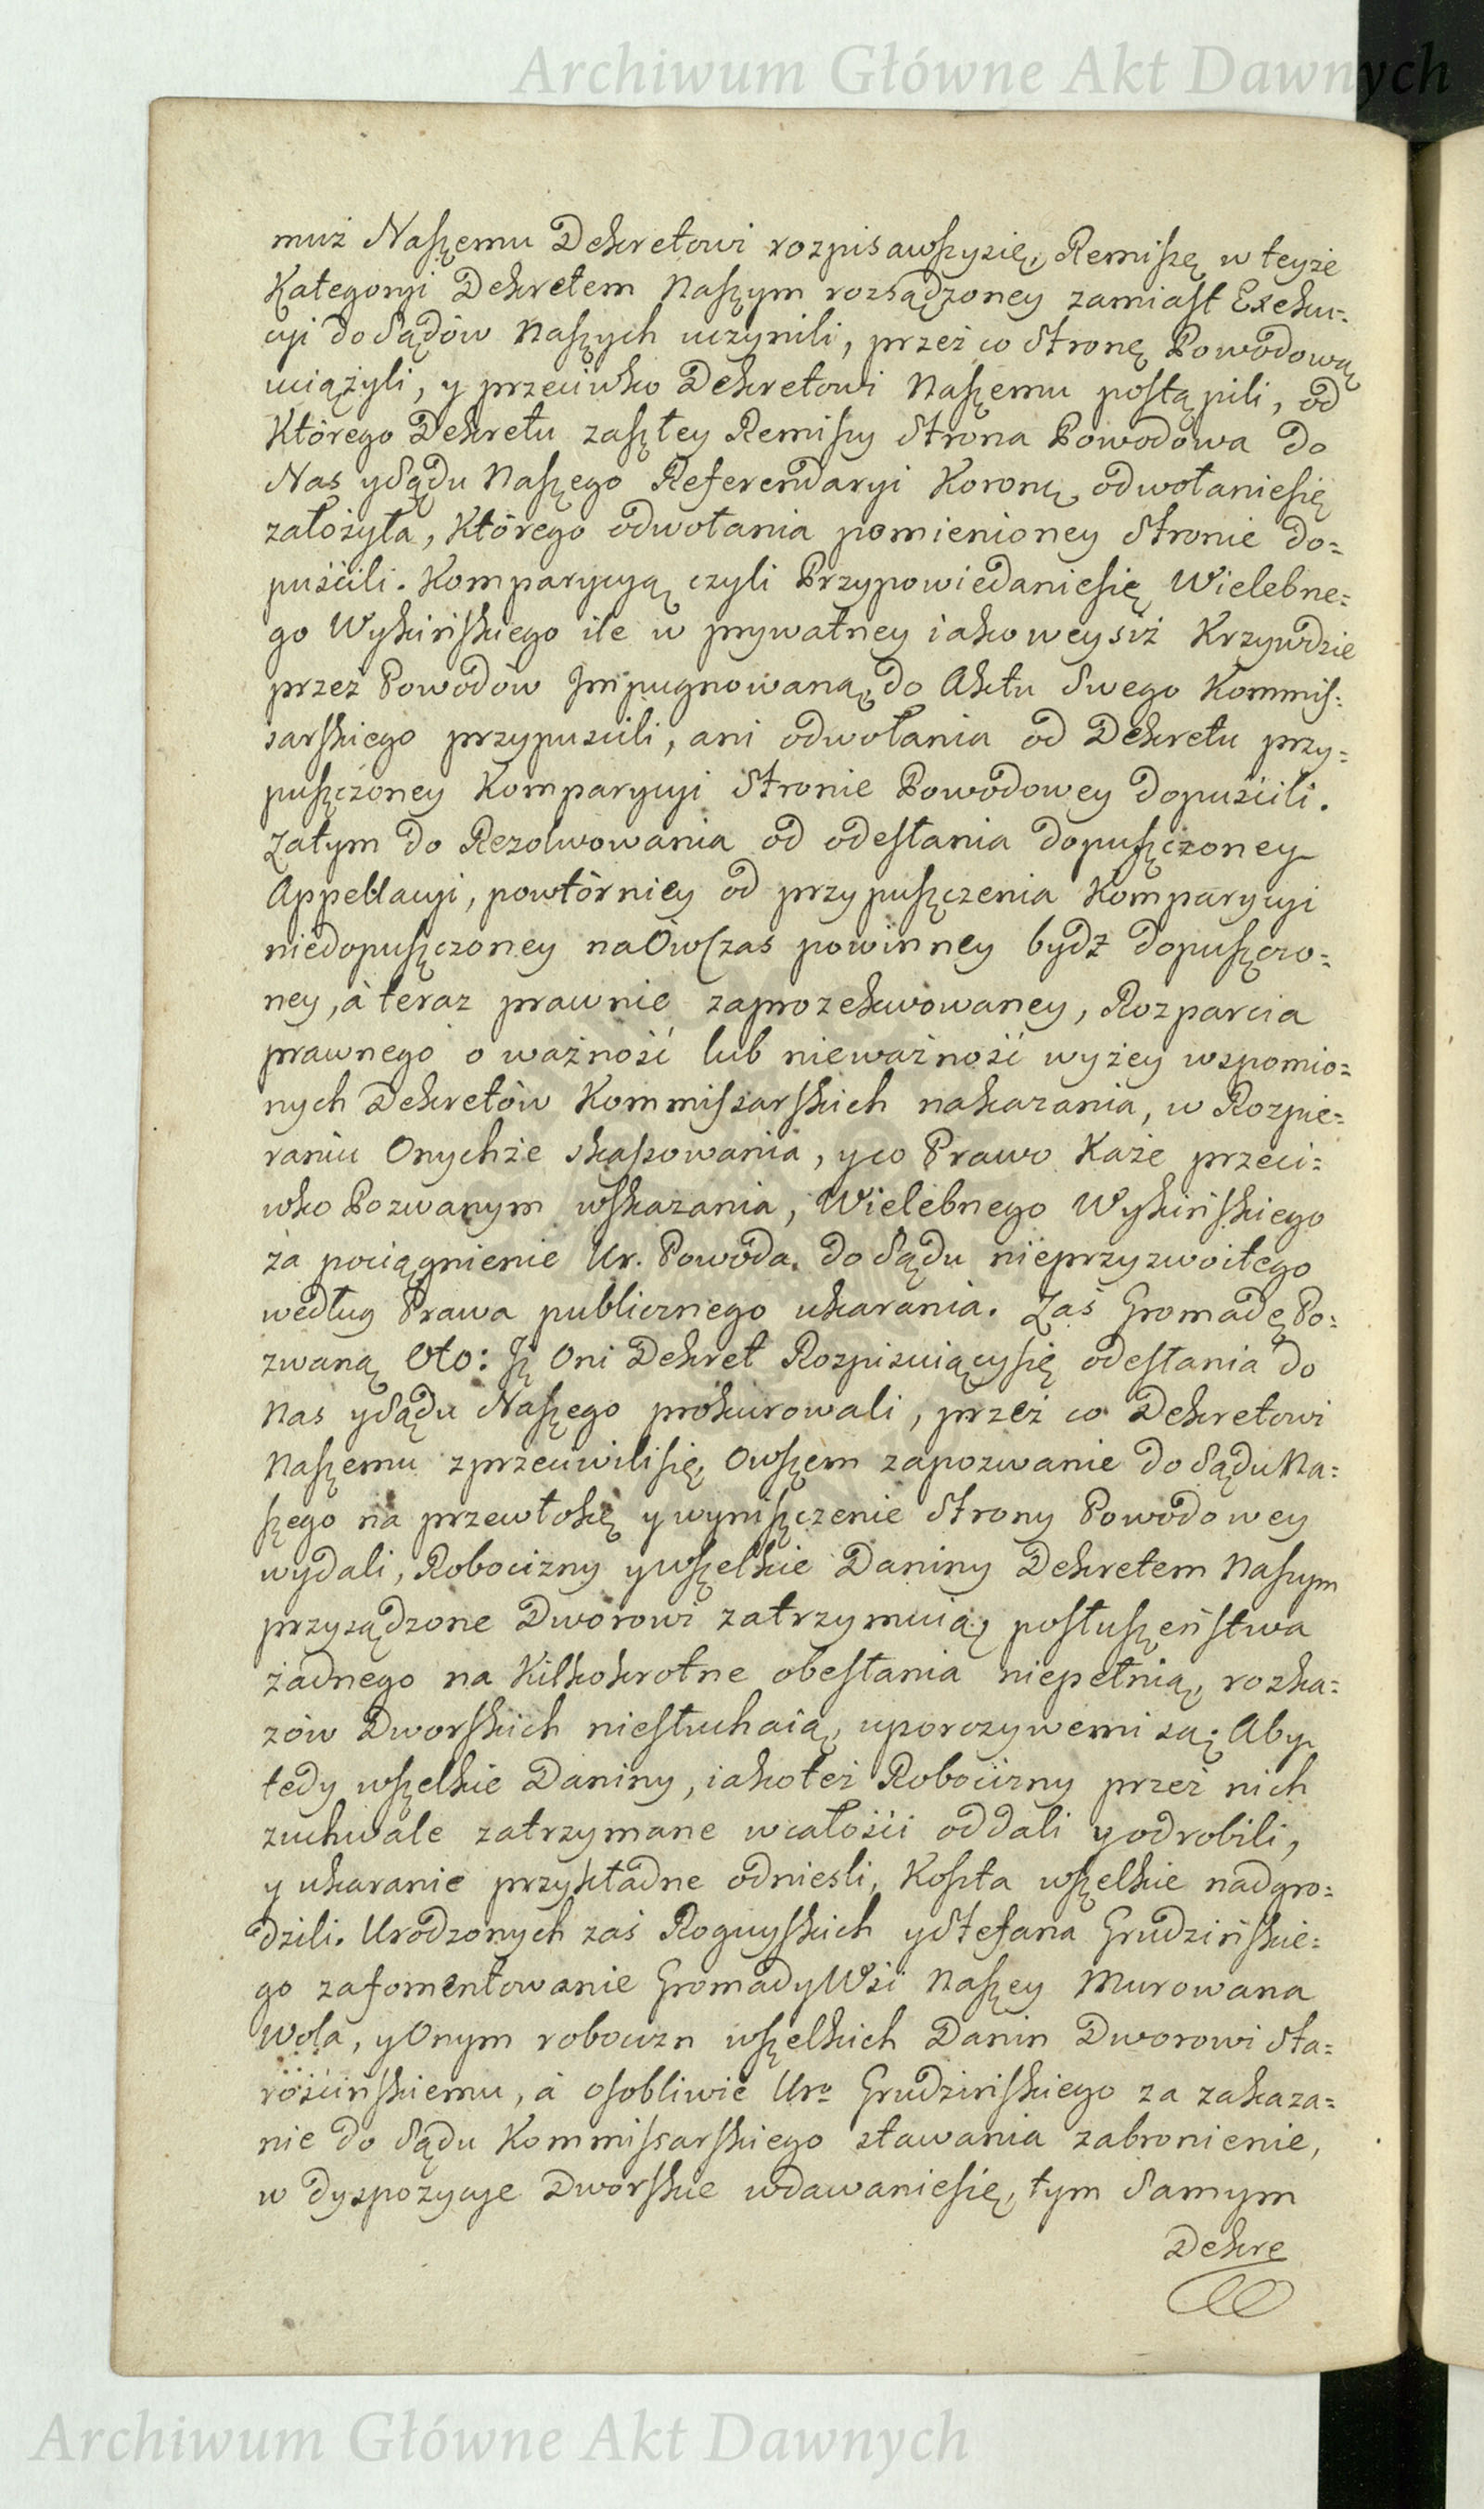 Archiwum Główne Akt Dawnych
muż Naszemu Dekretowi rozpisawszysię, Remiszę w teyże
Kategoryi Dekretem Naszym rozsądzoney zamiast Exeku=
cyi do Sądów Naszych uczynili, przez co Stronę Powodową
uciążyli, y przeciwko Dekretowi Naszemu postąpili, od
Którego Dekretu zaszłey Remiszy Strona Powodowa do
Nas y Sądu Naszego Referendaryi Koronę odwołaniesię
założyła, Którego odwołania pomienioney Stronie do=
puścili. Komparycyą czyli Przypowiedaniesię Wielebne=
go Wykińskiego ile w prywatney iakoweysiż Krzywdzie
przez Powodów Impugnowaną, do Aktu Swego Kommis=
sarskiego przypuścili, ani odwołania od Dekretu przy=
puszczoney Komparycyi Stronie Powodowey dopuścili.
Zatym do Rezolwowania od odesłania dopuszczoney
Appellacyi, powtórniey od przypuszczenia Komparycyi
niedopuszczoney naówczas powinney bydź dopuszczo=
ney, à teraz prawnie zaprozekwowaney, Rozparcia
prawnego o ważność lub nieważność wyżey wspomio=
nych Dekretów Kommissarskich nakazania, w Rozpie=
raniu Onychże skasowania, y co Prawo Każe przeci=
wko Pozwanym wskazania, Wielebnego Wykińskiego
za pociągnienie Ur. Powoda do Sądu nieprzyzwoitego
według Prawa publicznego ukarania. Zaś Gromadę Po=
zwaną Oto: Jż Oni Dekret Rozpisuiącysię odesłania do
Nas y Sądu Naszego prokurowali, przez co Dekretowi
Naszemu zprzeciwilisię, Owszem zapozwanie do Sądu Na=
szego na przewłokę y wyniszczenie Strony Powodowey
wydali, Robocizny y wszelkie Daniny Dekretem Naszym
przysądzone Dworowi zatrzymuią, posłuszeństwa
żadnego na Kilkokrotne obesłania niepełnią, rozka=
zów Dworskich niesłuchaią, uporczywemi są; Aby
tedy wszelkie Daniny, iakoteż Robocizny przez nich
zuchwale zatrzymane wcałości oddali y odrobili,
y ukaranie przykładne odniesli, Koszta wszelkie nadgro=
dzili. Urodzonych zaś Roguyskich y Stefana Grudzińskie=
go zafomentowanie Gromady Wsi Naszey Murowana
Wola, y Onym robocizn wszelkich Danin Dworowi Sta=
rościńskiemu, à osobliwie Uro Grudzińskiego za zakaza=
nie do Sądu Kommissarskiego stawania zabronienie,
w dyspozycye Dworskie wdawaniesię, tym Samym
Dekre
Archiwum Główne Akt Dawnych